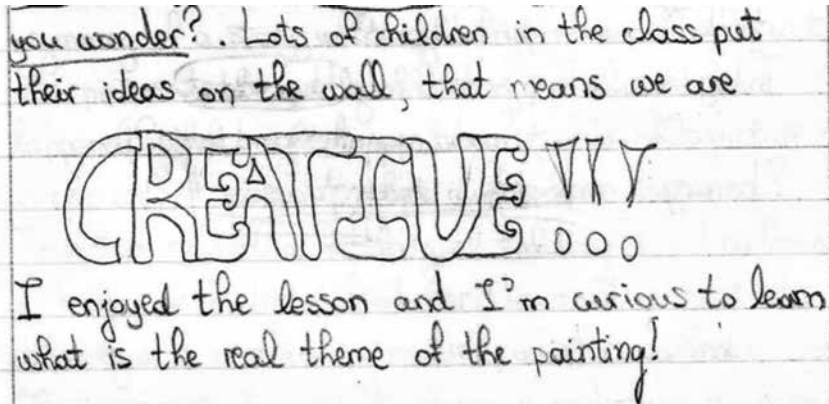 you wonder?. Lots of children in the class put
their ideas on the wall, that means we are
CREATIVE!!!
I enjoyed the lesson and I'm curious to learn
what is the real theme of the painting!